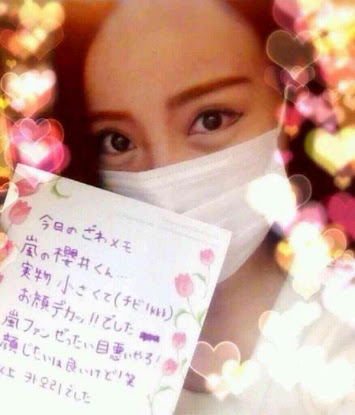 今日のざわメモ
嵐の櫻井くん…
実物小さくて(チビ!kkk)
お顔デカッ!!でした
嵐ファンぜったい目悪いやろ!
顔じたいは良いけど!笑
以上 カオリでした